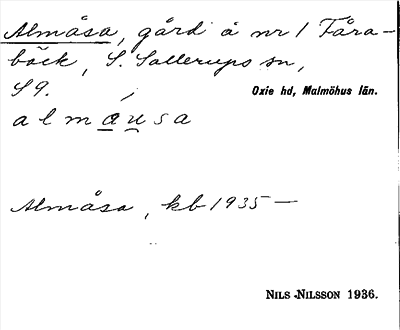 Almåsa, gård å nr 1 Fåra-
bäck, S. Sallerups sn,
S9.
Oxie hd, Malmöhus län.
almausa
Almåsa, kb 1935—
NILS NILSSON 1936.